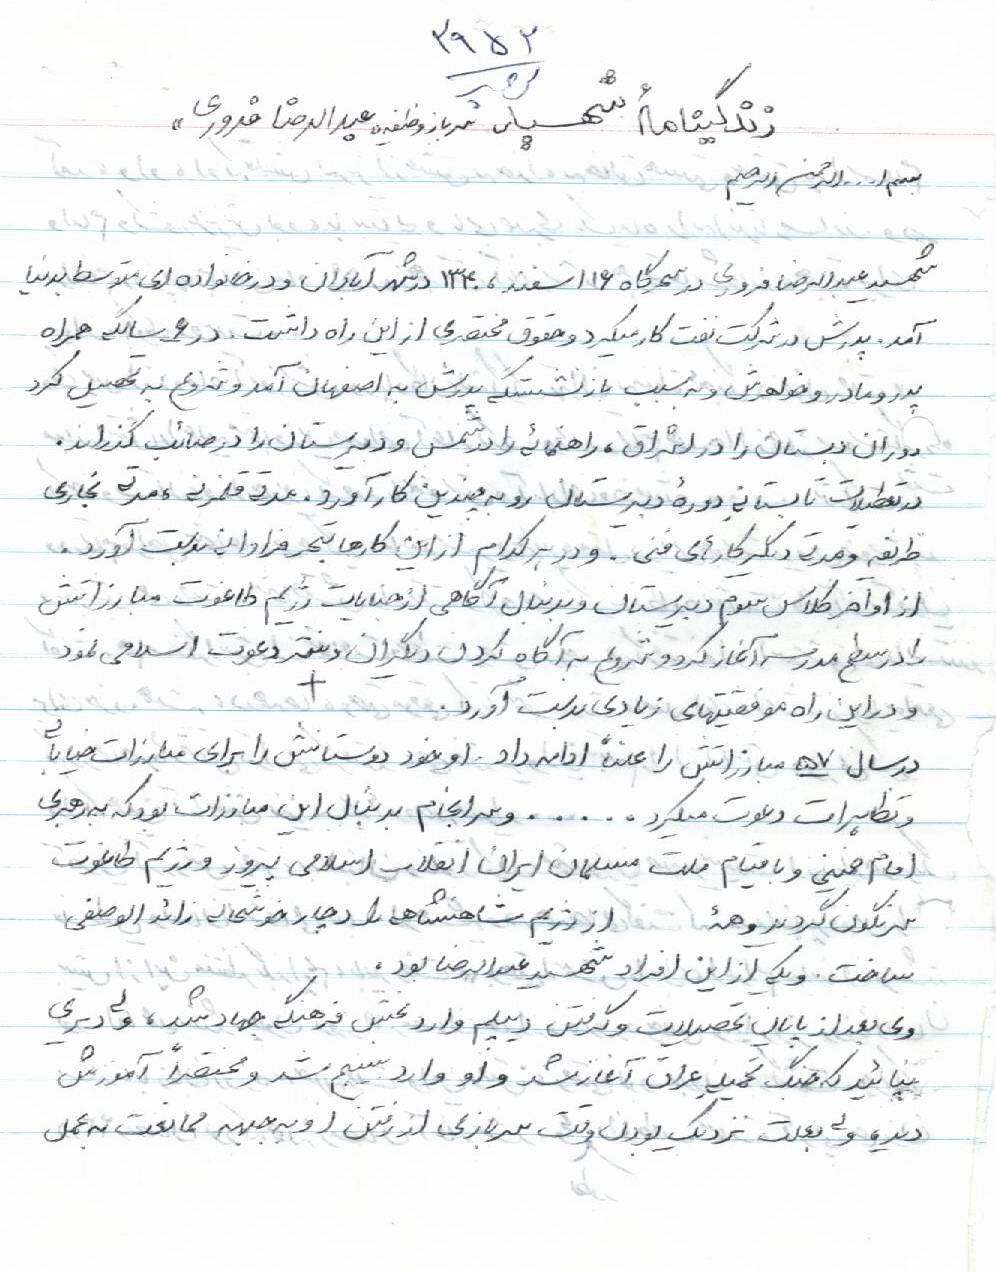 ۲۹۵۲
زندگینامهٔ شهید سرباز وظیفه «عبدالرضا فروردی»
بسم ا... الرحمن الرحیم
شهید عبدالرضا فروردی در سحرگاه ۱۶ اسفند ۱۳۴۰ در شهر آبادان و در خانواده ای متوسط بدنیا
آمد. پدرش در شرکت نفت کار میکرد و حقوق مختصری از این راه داشت. در ۶ سالگی همراه
پدر و مادر و خواهرش و به سبب بازنشستگی پدرش به اصفهان آمد و شروع به تحصیل کرد
دوران دبستان را در اشراق، راهنمائی را در شمس و دبیرستان را در صائب گذراند.
در تعطیلات تابستانی دورهٔ دبیرستان رو به چندین کار آورد. مدتی قلمزنی، مدتی نجاری
ظریفه و مدتی دیگر کارهای فنی. و در هر کدام از این کارها تبحر فراوانی بدست آورد.
از اواخر کلاس سوم دبیرستان و بدنبال آگاهی از جنایات رژیم طاغوت مبارزاتش
را در سطح مدرسه آغاز کرد و شروع به آگاه کردن دیگران و دعوت اسلامی نمود
و در این راه موفقیتهای زیادی بدست آورد.
در سال ۵۷ مبارزاتش را علناً ادامه داد. او خود دوستانش را برای مبارزات خیابانی
و تظاهرات دعوت میکرد ..... و سرانجام بدنبال این مبارزات بود که به رهبری
امام خمینی و با قیام ملت مسلمان ایران انقلاب اسلامی پیروز و رژیم طاغوت
سرنگون گردید و همهٔ از رژیم شاهنشاهی را دچار خوشحالی زائد الوصفی
ساخت. و یکی از این افراد شهید عبدالرضا بود.
وی بعد از پایان تحصیلات و گرفتن دیپلم وارد بخش فرهنگی جهاد شد، ولی دیری
نپائید که جنگ تحمیلی عراق آغاز شد و او وارد بسیج شد و مختصراً آموزش
دید، ولی بعلت نزدیک بودن وقت سربازی از رفتن او به جبهه ممانعت به عمل